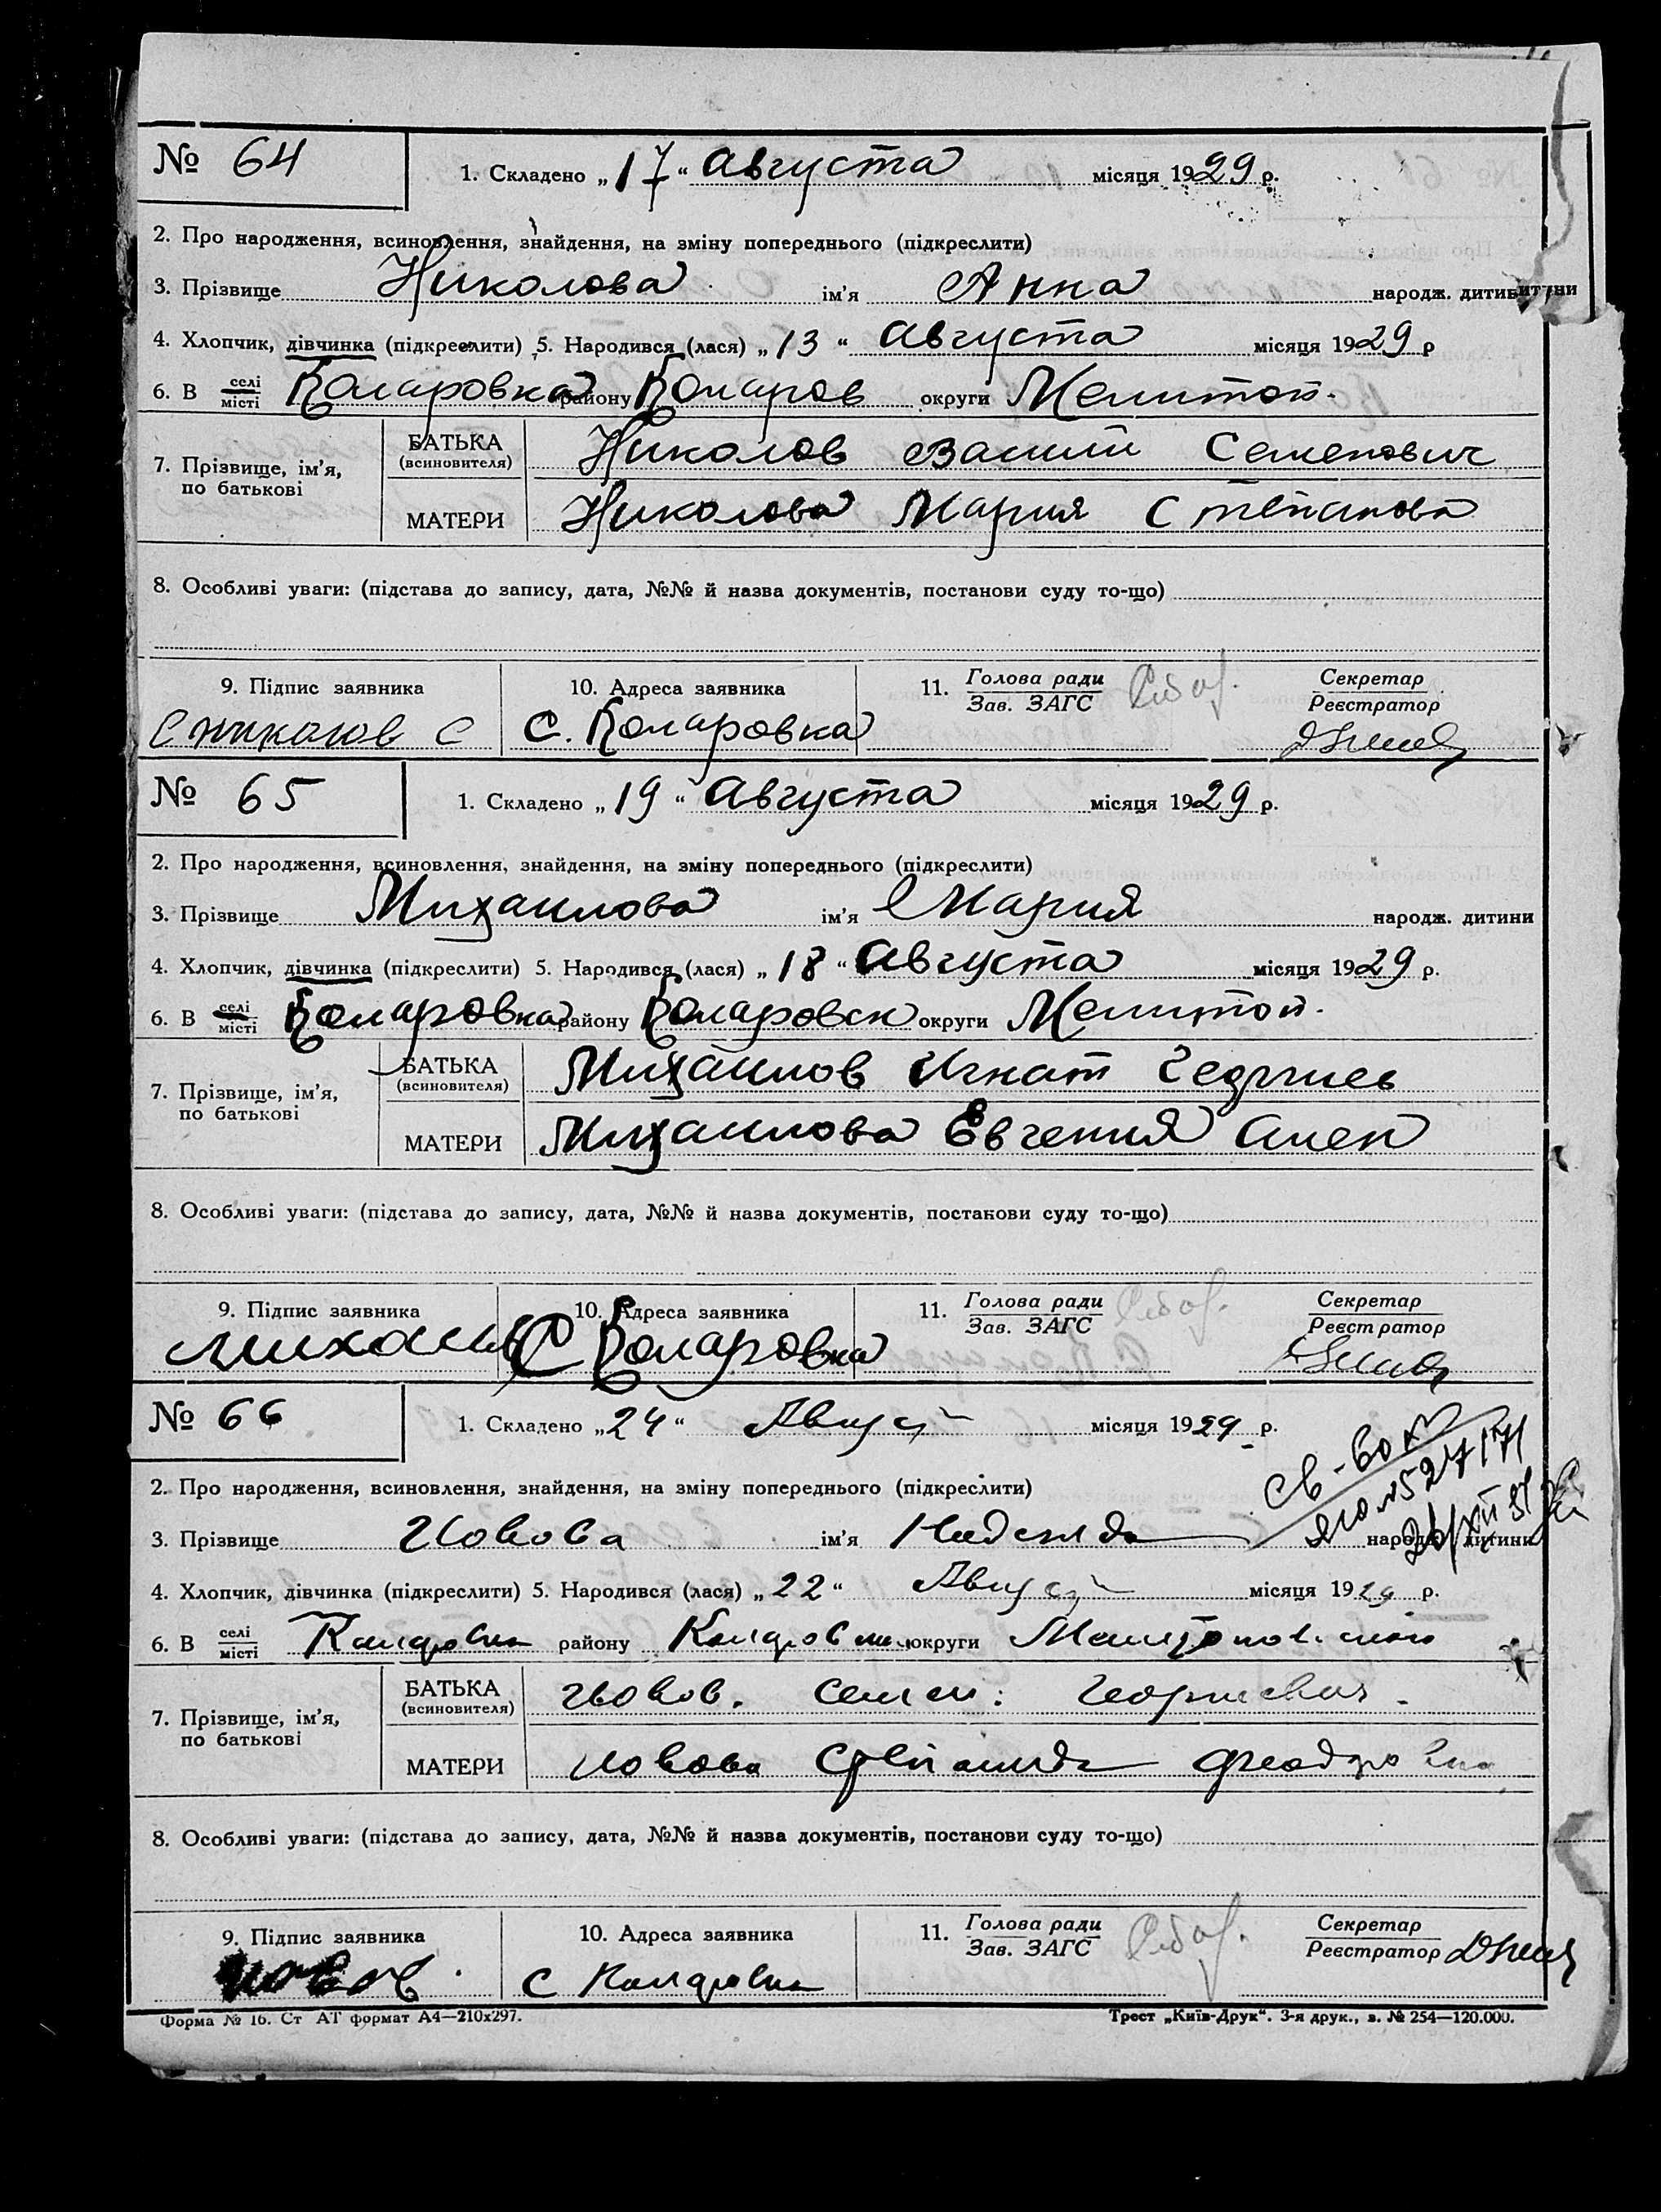 № 64
1. Складено „17“ Августа місяця 1929 р.
2. Про народження, всиновлення, знайдення, на зміну попереднього (підкреслити)
3. Прізвище Николова ім'я Анна народж. дитини
4. Хлопчик, дівчинка (підкреслити) 5. Народився (лася) „13“ Августа місяця 1929 р
6. В селі місті Коларовка району Коларов округи Мелитоп.
7. Прізвище, ім'я, по батькові
БАТЬКА (всиновителя) Николов Васили Семенович
МАТЕРИ Николова Мария Степанова
8. Особливі уваги: (підстава до запису, дата, №№ й назва документів, постанови суду то-що)
9. Підпис заявника 10. Адреса заявника 11. Голова ради Зав. ЗАГС Секретар Реєстратор
С Николов С С. Коларовка
№ 65
1. Складено „19“ Августа місяця 1929 р.
2. Про народження, всиновлення, знайдення, на зміну попереднього (підкреслити)
3. Прізвище Михаилова ім'я Мария народж. дитини
4. Хлопчик, дівчинка (підкреслити) 5. Народився (лася) „18“ Августа місяця 1929 р.
6. В селі місті Коларовка району Коларовск округи Мелитоп.
7. Прізвище, ім'я, по батькові
БАТЬКА (всиновителя) Михаилов Игнат Георгиев
МАТЕРИ Михаилова Евгения Алек
8. Особливі уваги: (підстава до запису, дата, №№ й назва документів, постанови суду то-що)
9. Підпис заявника 10. Адреса заявника 11. Голова ради Зав. ЗАГС Секретар Реєстратор
С Коларовка
№ 66
1. Складено „24“ Август місяця 1929 р.
2. Про народження, всиновлення, знайдення, на зміну попереднього (підкреслити)
3. Прізвище Иовова ім'я Надежда народж. дитини
4. Хлопчик, дівчинка (підкреслити) 5. Народився (лася) „22“ Август місяця 1929 р.
6. В селі місті Коларовка району округи
7. Прізвище, ім'я, по батькові
БАТЬКА (всиновителя) Иовов. Семен: Георгиевич.
МАТЕРИ Иовова Степанида Феодоровна
8. Особливі уваги: (підстава до запису, дата, №№ й назва документів, постанови суду то-що)
9. Підпис заявника 10. Адреса заявника 11. Голова ради Зав. ЗАГС Секретар Реєстратор
Иовов. С Коларовка
Форма № 16. Ст АТ формат А4—210х297.
Трест „Київ-Друк“. 3-я друк., з. № 254—120.000.